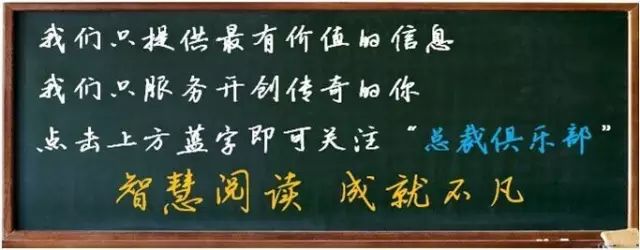 我们只提供最有价值的信息
我们只服务开创传奇的你
点击上方蓝字即可关注“总裁俱乐部”
智慧阅读 成就不凡